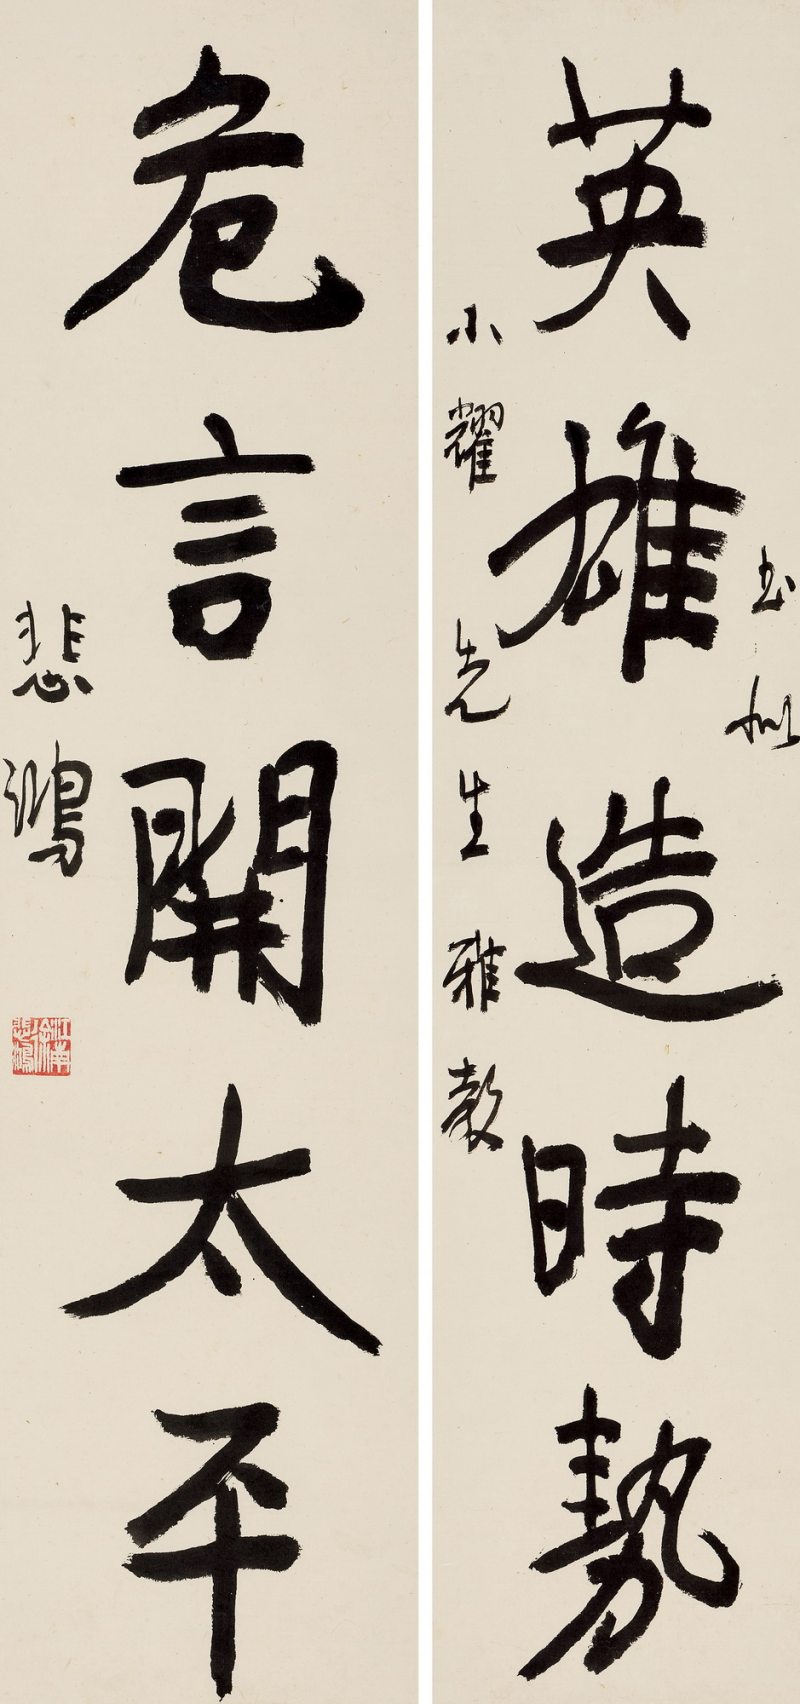 英雄造時勢
書似
小耀先生雅教
危言開太平
悲鴻
江南徐悲鴻